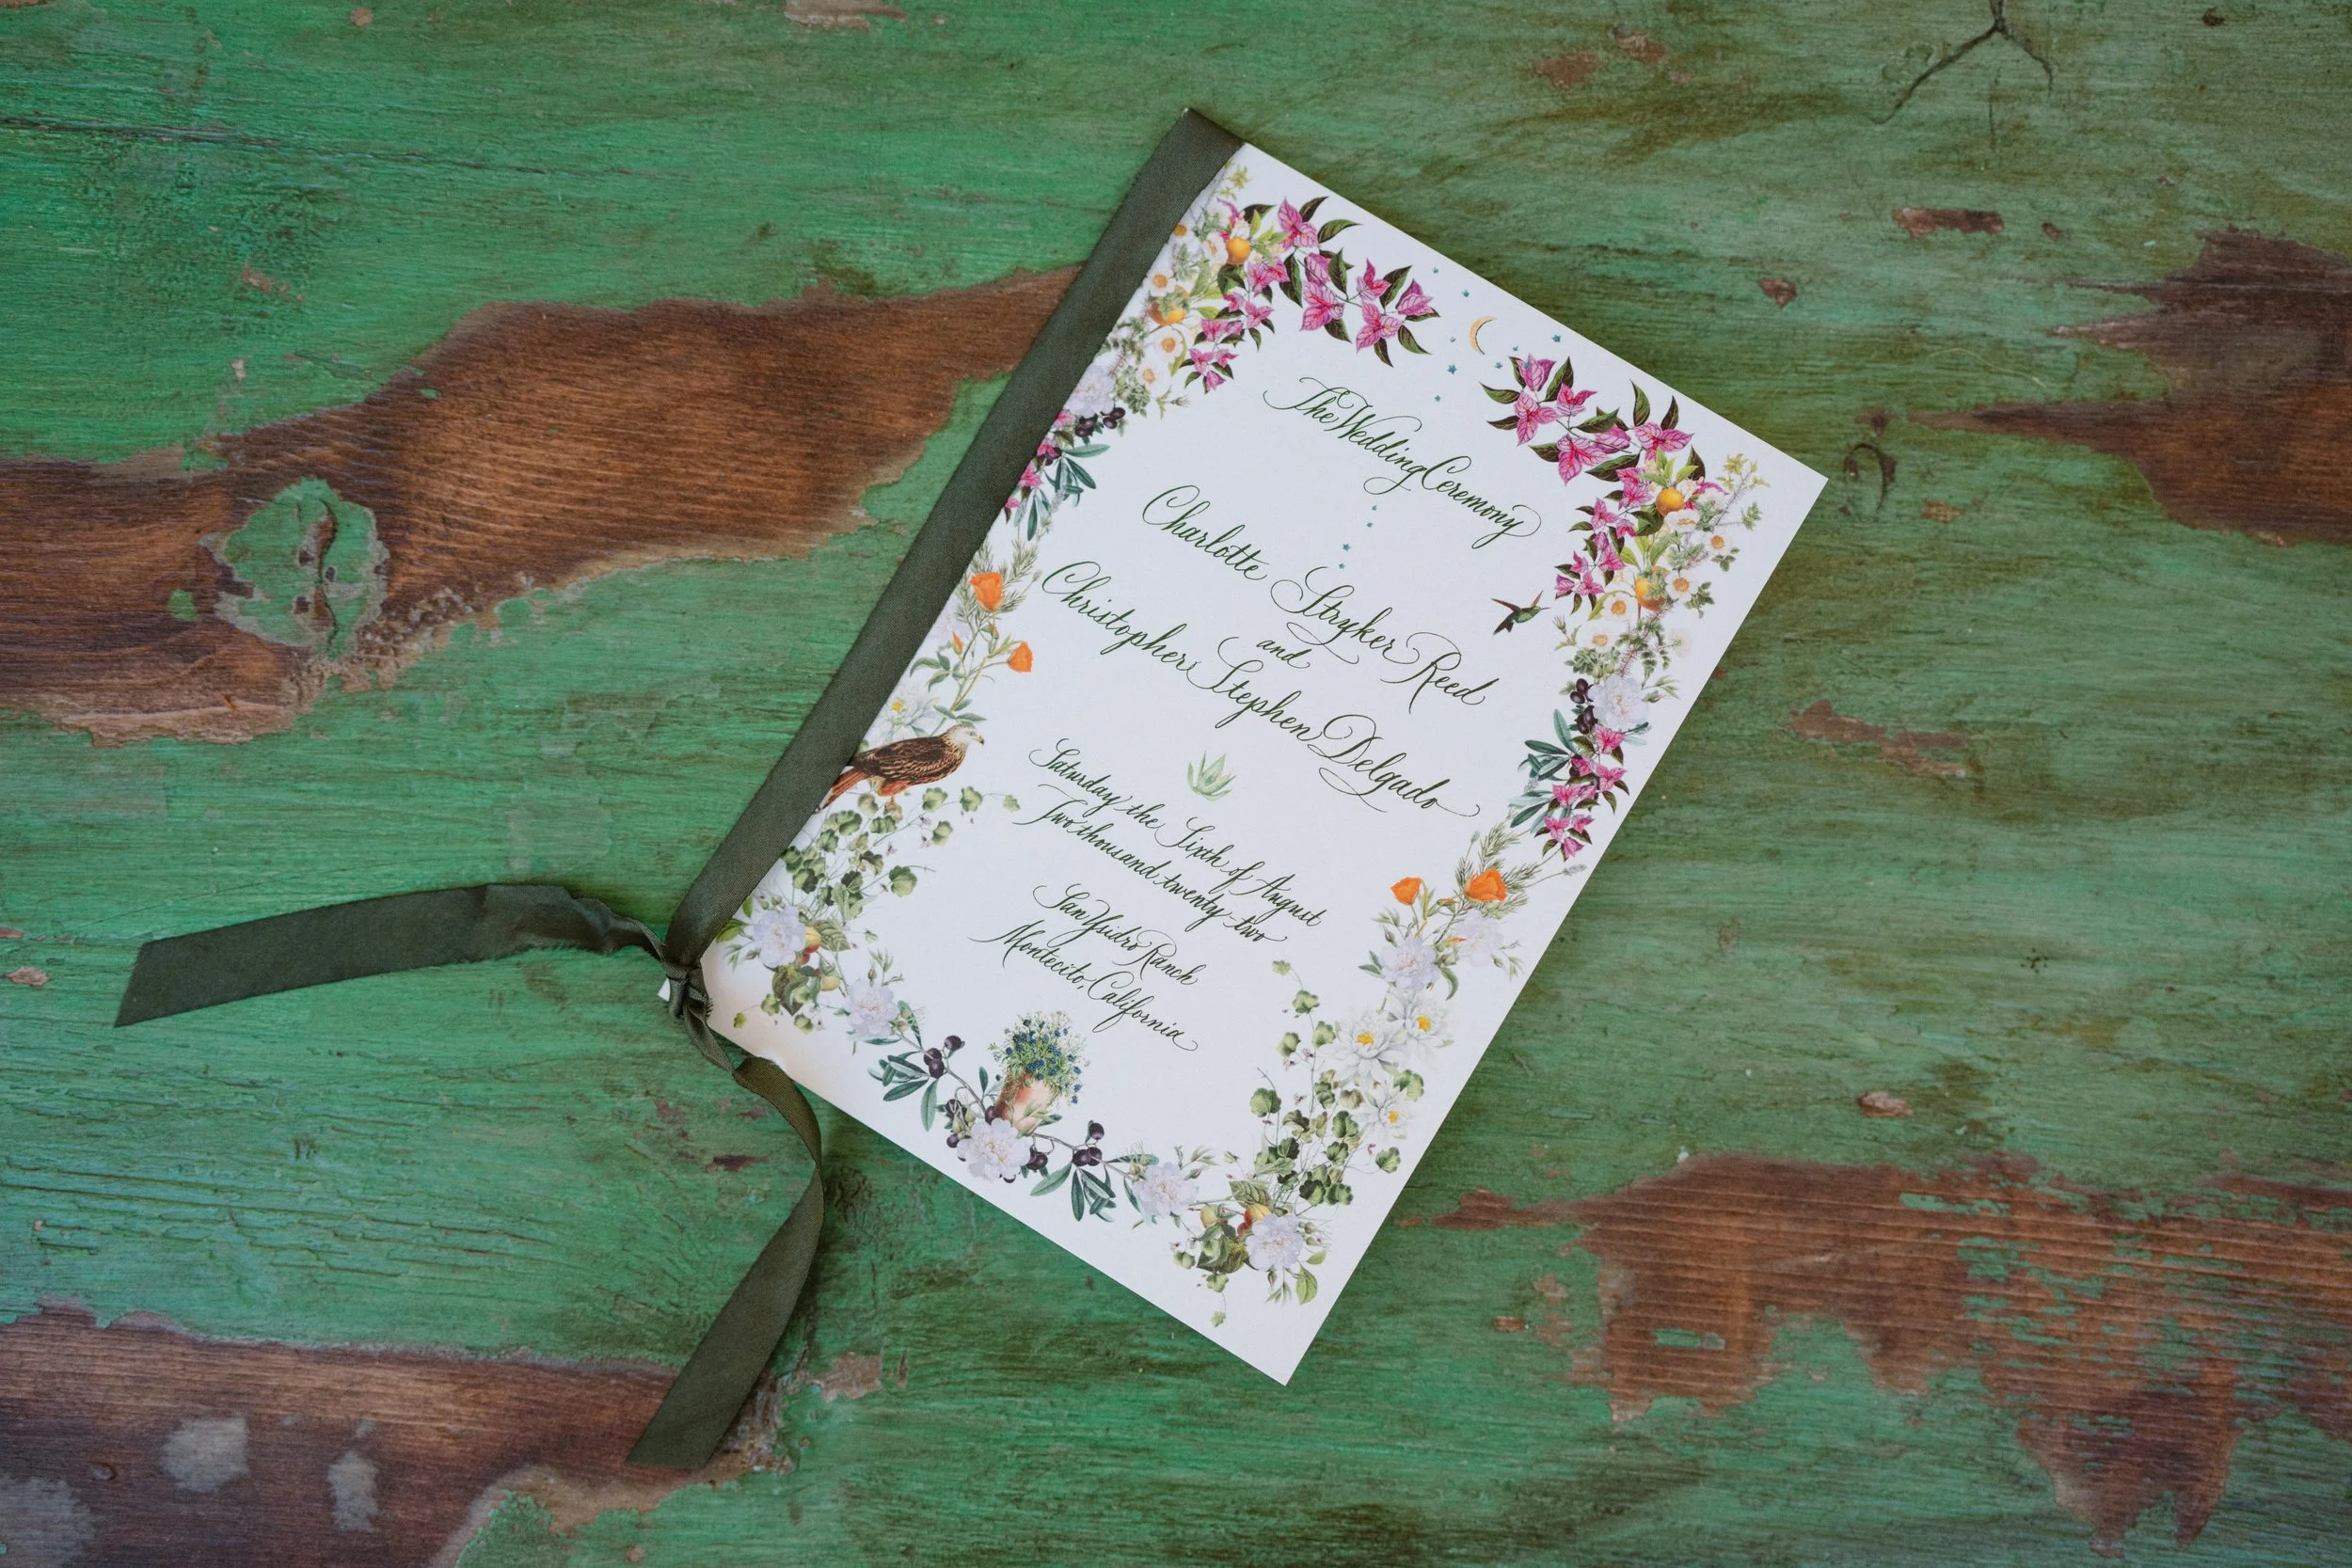 The Wedding Ceremony
Charlotte Stryker Reed
and
Christopher Stephen Delgado
Saturday the Sixth of August
Two thousand twenty-two
San Ysidro Ranch
Montecito, California